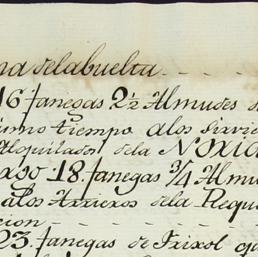 na dela buelta
16 fanegas 2½ Almudes
tiempo alos sirvie
Alquilados dela NORIA
18. fanegas ¾ Almu
alos Arrieros dela Requ
cion
23. fanegas de Frixol